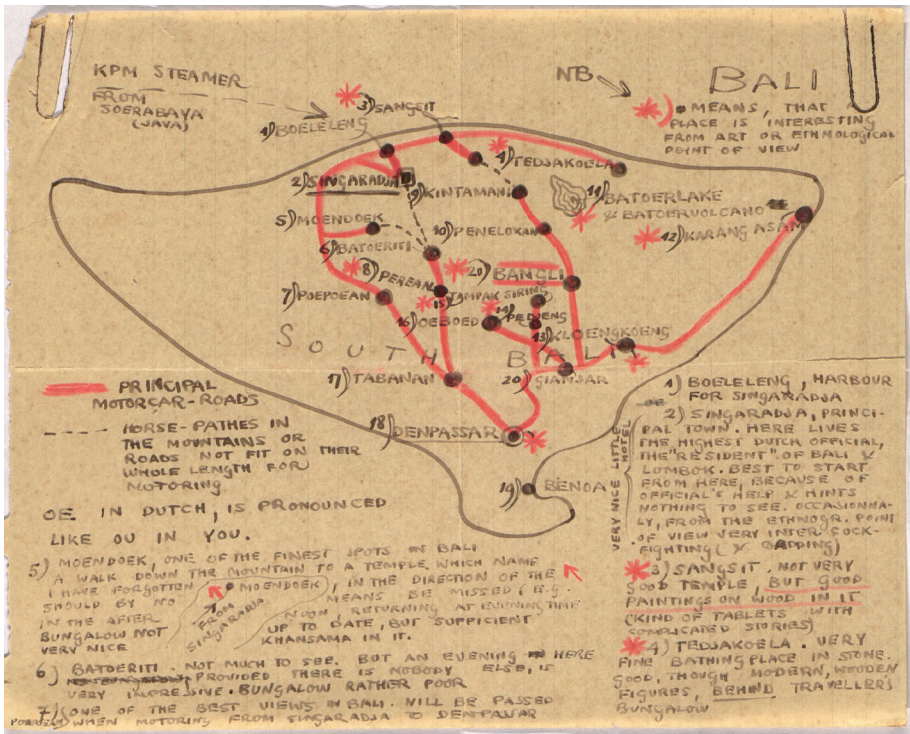 KPM STEAMER
FROM
SOERABAYA
(JAVA)
NB
BALI
MEANS, THAT A
PLACE IS INTERESTING
FROM ART OR ETHNOLOGICAL
POINT OF VIEW
3) SANGSIT
1) BOELELENG
4) TEDJAKOELA
2) SINGARADJA
9) KINTAMANI
11) BATOERLAKE
& BATOERVOLCANO
5) MOENDOEK
10) PENELOKAN
12) KARANG ASAM
6) BATOERITI
8) PEREAN
20) BANGLI
7) POEPOEAN
15) TAMPAK SIRING
16) OEBOED
14) PEDJENG
13) KLOENGKOENG
SOUTH BALI
17) TABANAN
20) GIANJAR
18) DENPASSAR
19) BENOA
PRINCIPAL
MOTORCAR-ROADS
HORSE-PATHES IN
THE MOUNTAINS OR
ROADS NOT FIT ON THEIR
WHOLE LENGTH FOR
MOTORING
OE IN DUTCH, IS PRONOUNCED
LIKE OU IN YOU.
5) MOENDOEK, ONE OF THE FINEST SPOTS ON BALI
A WALK DOWN THE MOUNTAIN TO A TEMPLE WHICH NAME
I HAVE FORGOTTEN MOENDOEK, IN THE DIRECTION OF THE
SHOULD BY NO MEANS BE MISSED (E.G.
FROM
SINGARADJA
IN THE AFTER NOON, RETURNING AT EVENING TIME
BUNGALOW NOT UP TO DATE, BUT SUFFICIENT
VERY NICE KHANSAMA IN IT.
6) BATOERITI. NOT MUCH TO SEE. BUT AN EVENING HERE
PROVIDED THERE IS NOBODY ELSE, IS
VERY IMPRESSIVE. BUNGALOW RATHER POOR
7) (ONE OF THE BEST VIEWS IN BALI. WILL BE PASSED
POEPOEAN) WHEN MOTORING FROM SINGARADJA TO DENPASSAR
1) BOELELENG, HARBOUR
FOR SINGARADJA
2) SINGARADJA, PRINCI-
PAL TOWN. HERE LIVES
THE HIGHEST DUTCH OFFICIAL,
THE "RESIDENT" OF BALI &
LOMBOK. BEST TO START
FROM HERE, BECAUSE OF
OFFICIAL'S HELP & HINTS
NOTHING TO SEE. OCCASIONNA-
LY, FROM THE ETHNOGR. POINT
OF VIEW VERY INTER COCK-
FIGHTING (& BADDING)
VERY NICE LITTLE
HOTEL
3) SANGSIT, NOT VERY
GOOD TEMPLE, BUT GOOD
PAINTINGS ON WOOD IN IT
(KIND OF TABLETS WITH
COMPLICATED STORIES)
4) TEDJAKOELA. VERY
FINE BATHINGPLACE IN STONE.
GOOD, THOUGH MODERN, WOODEN
FIGURES, BEHIND TRAVELLER'S
BUNGALOW